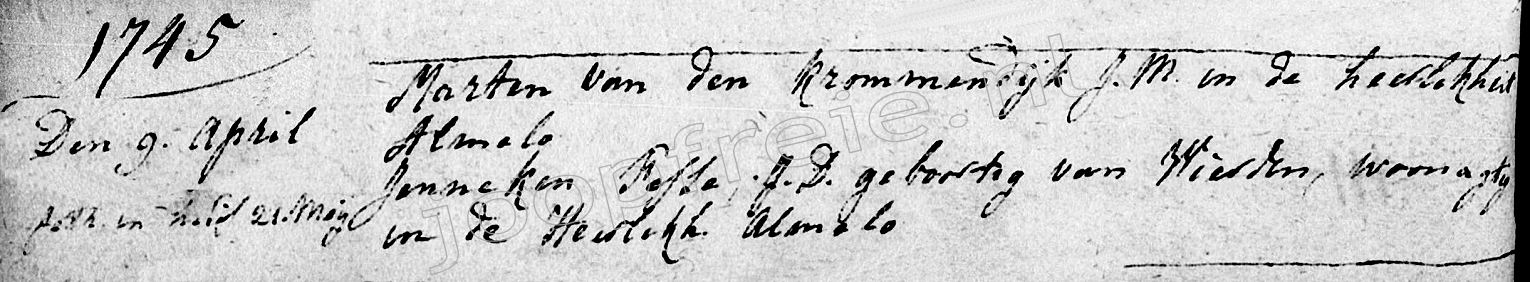 1745
Den 9. April
in 21 Meij
Marten van den Krommendijk J.M. in de heerlekheit
Almelo
Jenneken Fesse, J.D. geboortig van Wierden, woonagtig
in de Heerlekh. Almelo
joopfreie.nl